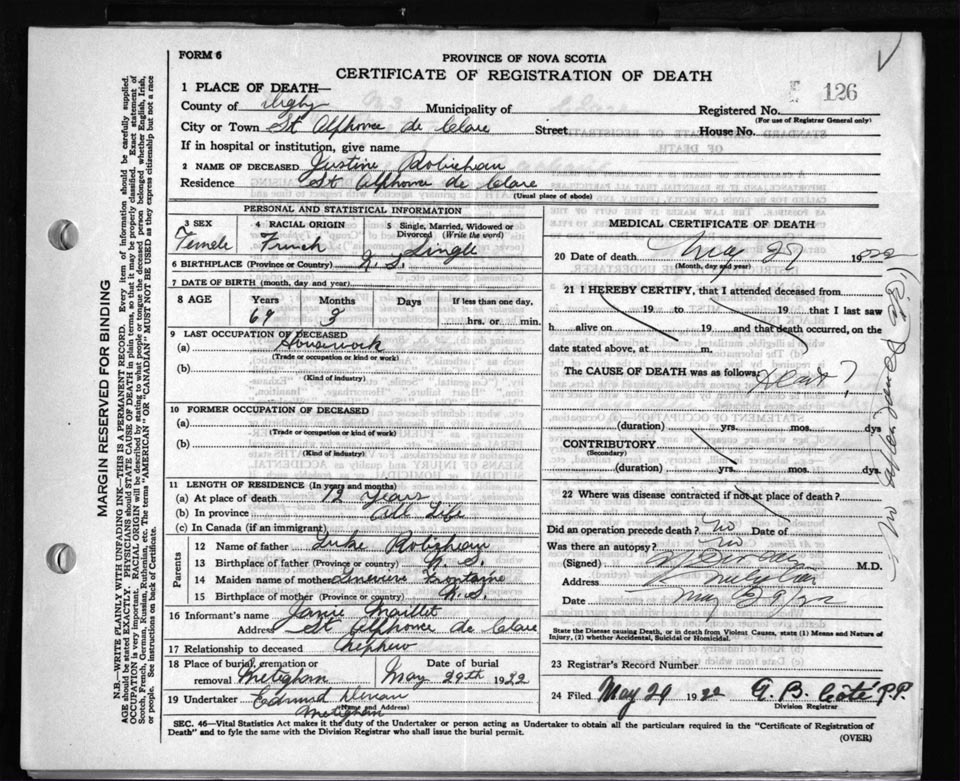 FORM 6
PROVINCE OF NOVA SCOTIA
CERTIFICATE OF REGISTRATION OF DEATH
126
1 PLACE OF DEATH—
County of Digby Municipality of Registered No.
(For use of Registrar General only)
City or Town St Alphonse de Clare Street House No.
If in hospital or institution, give name
2 NAME OF DECEASED Justine Robicheau
Residence St Alphonse de Clare
(Usual place of abode)
PERSONAL AND STATISTICAL INFORMATION
3 SEX 4 RACIAL ORIGIN 5 Single, Married, Widowed or Divorced (Write the word)
Female French Single
6 BIRTHPLACE (Province or Country) N. S.
7 DATE OF BIRTH (month, day, and year)
8 AGE Years Months Days If less than one day,
69 3 hrs. or min.
9 LAST OCCUPATION OF DECEASED
(a) Housework
(Trade or occupation or kind or work)
(b)
(Kind of industry)
10 FORMER OCCUPATION OF DECEASED
(a)
(Trade or occupation or kind of work)
(b)
(Kind of industry)
11 LENGTH OF RESIDENCE (In years and months)
(a) At place of death 12 Years
(b) In province All Life
(c) In Canada (if an immigrant)
Parents
12 Name of father Luke Robicheau
13 Birthplace of father (Province or country) N. S.
14 Maiden name of mother Genevieve Fontaine
15 Birthplace of mother (Province or country) N. S.
16 Informant's name Maillet
Address St Alphonse de Clare
17 Relationship to deceased Nephew
18 Place of burial, cremation or removal Meteghan Date of burial May 29th 1922
19 Undertaker Edmund
(Name and Address)
Meteghan
MEDICAL CERTIFICATE OF DEATH
20 Date of death May 27 1922
(Month, day and year)
21 I HEREBY CERTIFY, that I attended deceased from
19 to 19 that I last saw
h alive on 19 and that death occurred, on
date stated above, at m.
The CAUSE OF DEATH was as follows: Heart ?
(duration) yrs. mos. dys
CONTRIBUTORY
(Secondary)
(duration) yrs. mos. dys.
22 Where was disease contracted if not at place of death?
Did an operation precede death? no Date of
Was there an autopsy? no
(Signed) M.D.
Address
Date May 29/22
State the Disease causing Death, or in death from Violent Causes, state (1) Means and Nature of Injury, (2) whether Accidental, Suicidal or Homicidal.
23 Registrar's Record Number
24 Filed May 29 1922 A. B. Coté P.P.
Division Registrar
SEC. 46—Vital Statistics Act makes it the duty of the Undertaker or person acting as Undertaker to obtain all the particulars required in the "Certificate of Registration of Death" and to fyle the same with the Division Registrar who shall issue the burial permit.
(OVER)
MARGIN RESERVED FOR BINDING
N.B.—WRITE PLAINLY WITH UNFADING INK—THIS IS A PERMANENT RECORD. Every item of information should be carefully supplied.
AGE should be stated EXACTLY. PHYSICIANS should STATE CAUSE OF DEATH in plain terms, so that it may be properly classified. Exact statement of
OCCUPATION is very important. RACIAL ORIGIN will be described by stating to what people or tongue the deceased person belonged whether English, Irish,
Scotch, French, German, Russian, Ruthenian, etc. The terms "AMERICAN" OR "CANADIAN" MUST NOT BE USED as they express citizenship but not a race
or people. See instructions on back of Certificate.